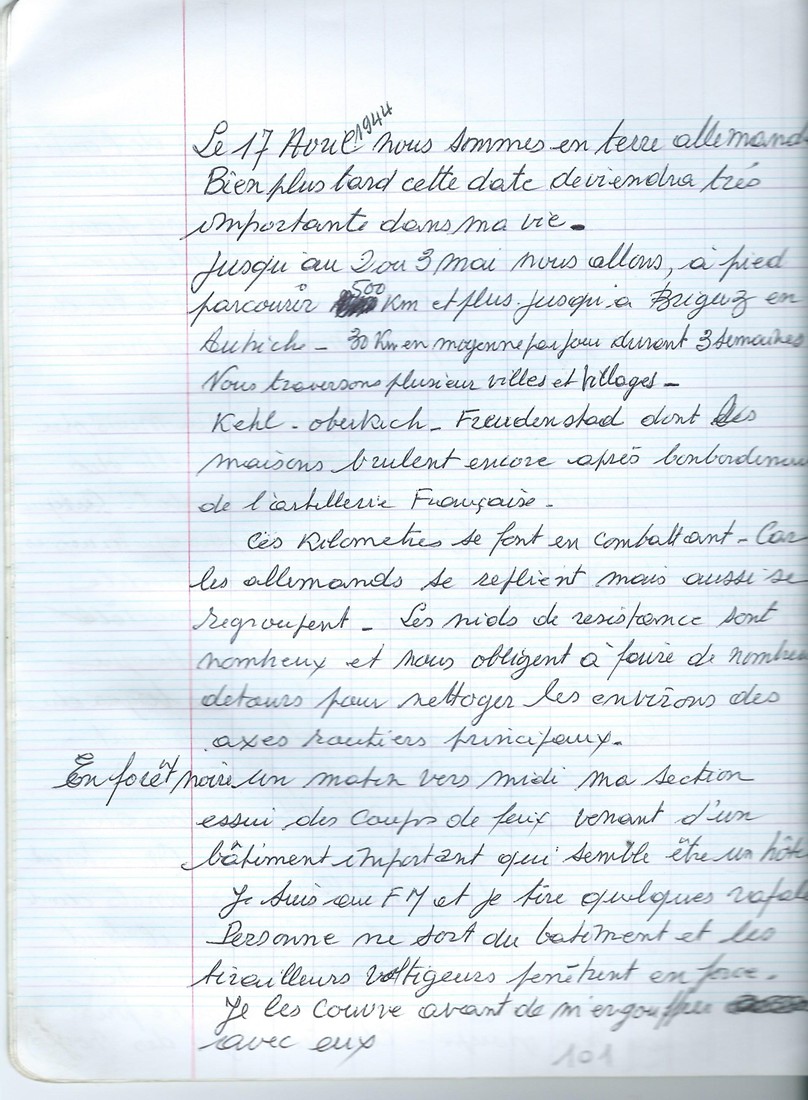 Le 17 Avril 1944 nous sommes en terre allemand
Bien plus tard cette date deviendra trés
importante dans ma vie.
Jusqu'au 2 ou 3 mai nous allons, à pied
parcourir 500 Km et plus jusqu'a Briguz en
Autriche - 30 Km en moyenne par jour durant 3 semaines
Nous traversons plusieur villes et villages -
Kehl - oberkich - Freudenstad dont les
maisons brulent encore aprés bonbordemen
de l'artillerie Française -
Ces Kilometres se font en combattant - Car
les allemands se replient mais aussi se
regroupent - Les nids de resistance sont
nombreux et nous obligent à faire de nombreu
detours pour nettoyer les environs des
axes routiers principaux.
En forêt noire un matin vers midi ma section
essui des coups de feux venant d'un
bâtiment important qui semble être un hôte
Je suis au FM et je tire quelques rafale
Personne ne sort du batiment et les
tirailleurs voltigeurs penètrent en force.
Je les couvre avant de m'engouffrer
avec eux
101